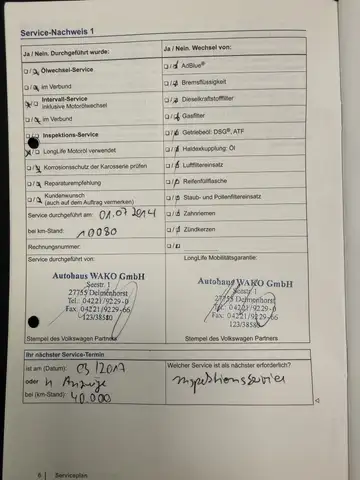 Service-Nachweis 1
Ja / Nein. Durchgeführt wurde:
Ja / Nein. Wechsel von:
Ölwechsel-Service
AdBlue®
im Verbund
Bremsflüssigkeit
Intervall-Service
inklusive Motorölwechsel
Dieselkraftstofffilter
im Verbund
Gasfilter
Inspektions-Service
Getriebeöl: DSG®, ATF
LongLife Motoröl verwendet
Haldexkupplung: Öl
Korrosionsschutz der Karosserie prüfen
Luftfiltereinsatz
Reparaturempfehlung
Reifenfüllflasche
Kundenwunsch
(auch auf dem Auftrag vermerken)
Staub- und Pollenfiltereinsatz
Service durchgeführt am: 01.07.2014
Zahnriemen
bei km-Stand: 10080
Zündkerzen
Rechnungsnummer:
Service durchgeführt von:
LongLife Mobilitätsgarantie:
Autohaus WAKO GmbH
Seestr. 1
27755 Delmenhorst
Tel.: 04221/9229-0
Fax: 04221/9229-66
123/38580
Stempel des Volkswagen Partners
Autohaus WAKO GmbH
Seestr. 1
27755 Delmenhorst
Tel.: 04221/9229-0
Fax: 04221/9229-66
123/38580
Stempel des Volkswagen Partners
Ihr nächster Service-Termin
ist am (Datum): 03/2017
oder n Anzeige
bei (km-Stand): 40.000
Welcher Service ist als nächstes erforderlich?
Inspektionsservice
6 Serviceplan